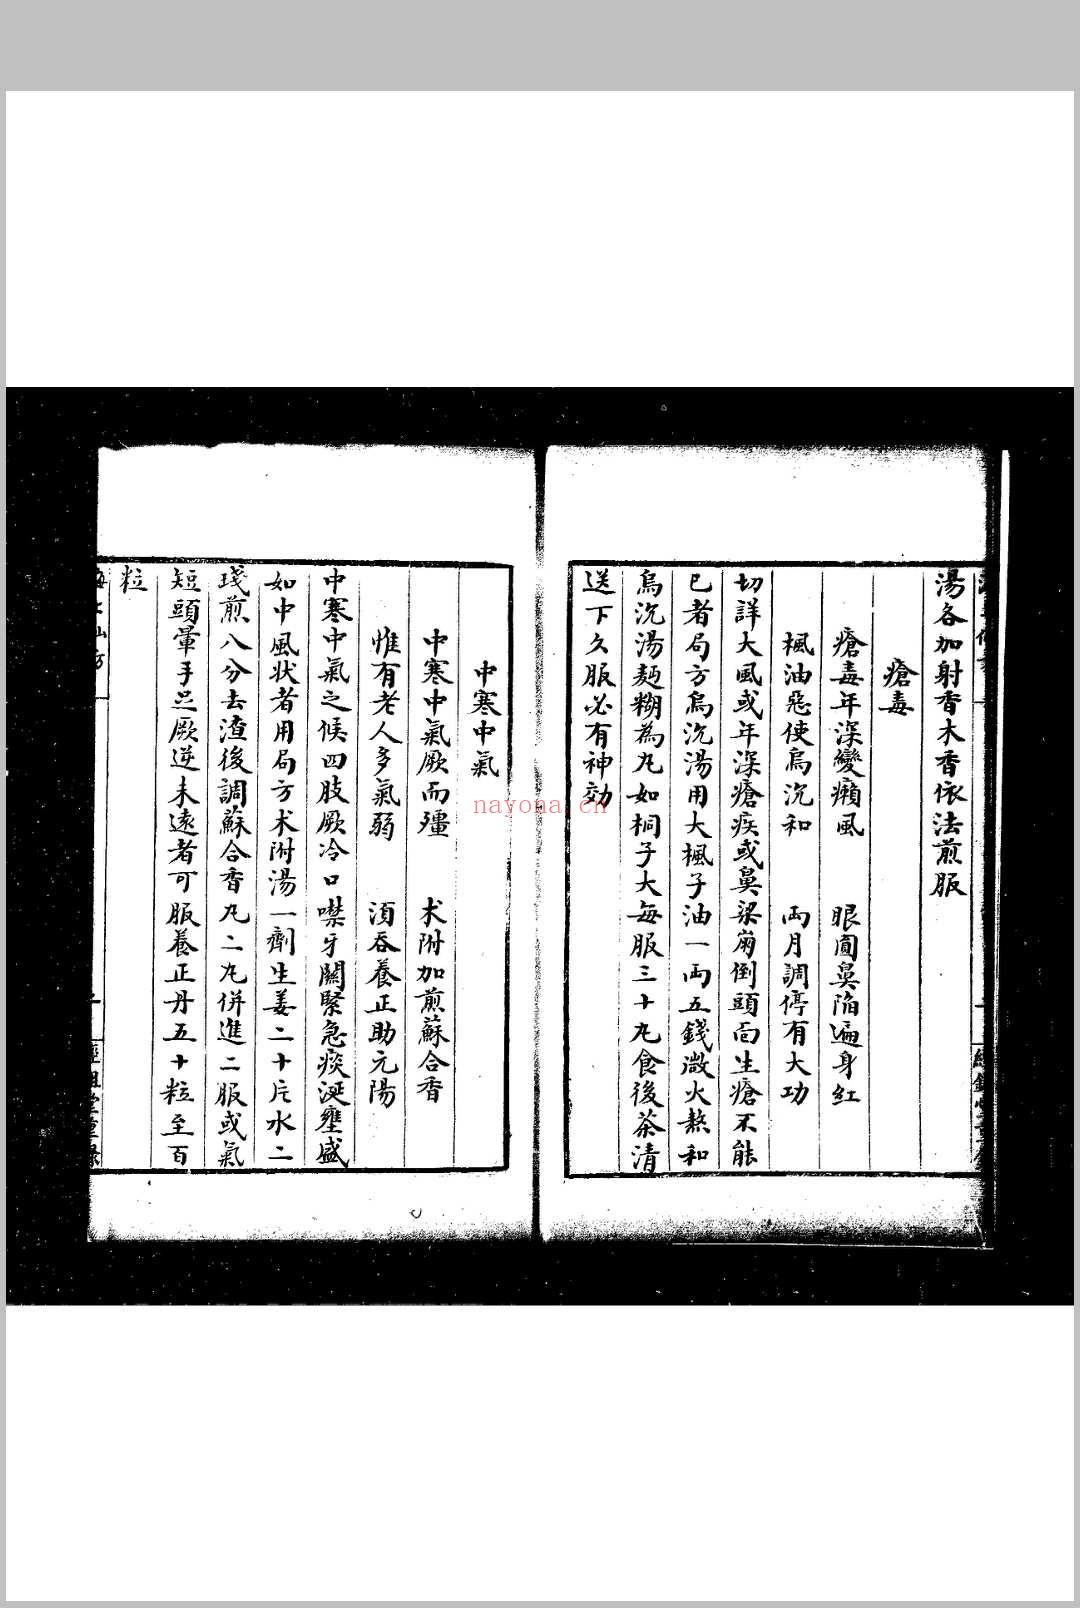 湯各加射香木香依法煎服
瘡毒
瘡毒年深變癩風 眼圓鼻陷遍身紅
楓油惡使烏沉和 両月調停有大功
切詳大風或年深瘡疾或鼻梁崩倒頭面生瘡不能
已者局方烏沉湯用大楓子油一両五錢微火熬和
烏沉湯麺糊為丸如桐子大每服三十丸食後茶清
送下久服必有神効
中寒中氣
中寒中氣厥而殭 术附加煎蘇合香
惟有老人多氣弱 須吞養正助元陽
中寒中氣之候四肢厥冷口噤牙關緊急痰涎壅盛
如中風状者用局方术附湯一劑生姜二十片水二
琖煎八分去渣後調蘇合香丸二丸併進二服或氣
短頭暈手足厥逆未遠者可服養正丹五十粒至百
粒
nayona.cn